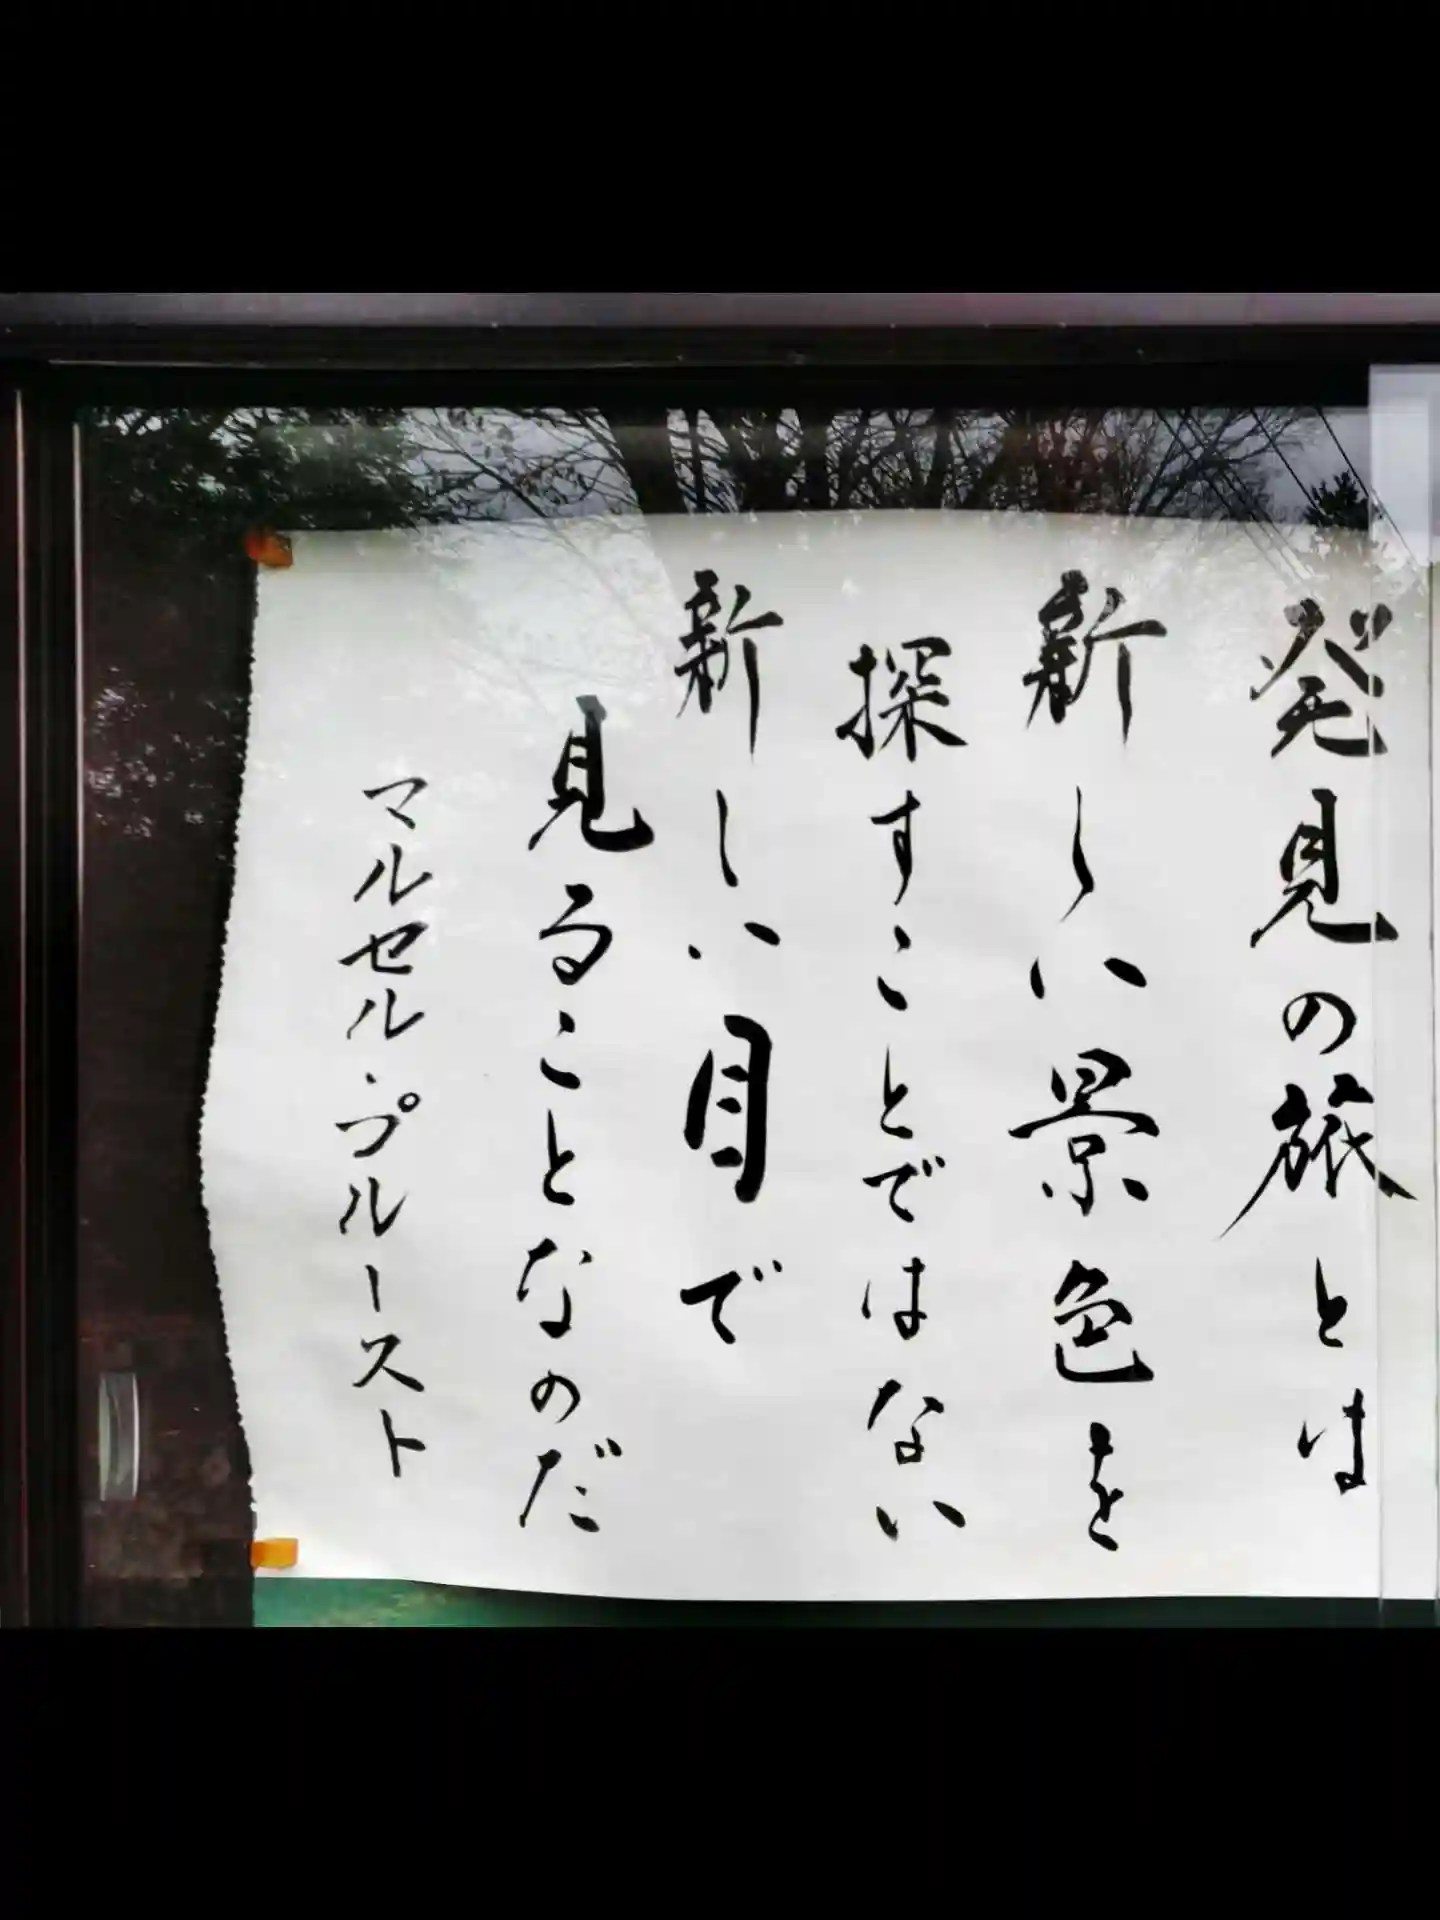 発見の旅とは
新しい景色を
探すことではない
新しい目で
見ることなのだ
マルセル・プルースト